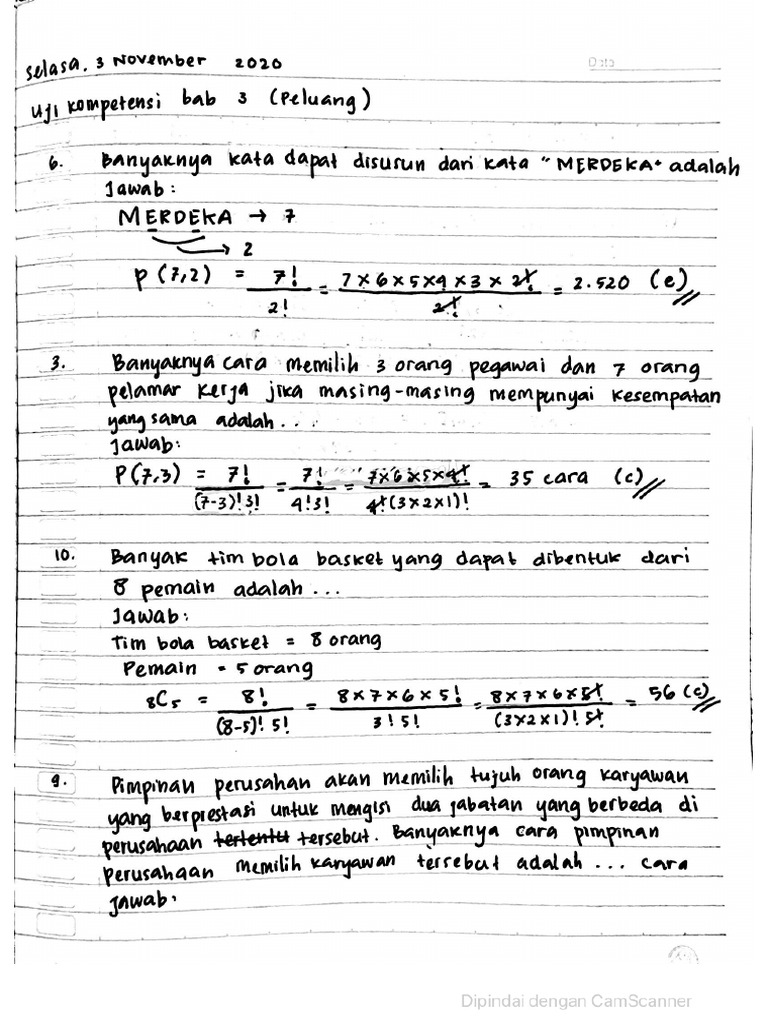 Selasa, 3 November 2020
Date
Uji kompetensi bab 3 (Peluang)
6. Banyaknya kata dapat disusun dari kata "MERDEKA" adalah
Jawab:
MERDEKA → 7
→ 2
P (7,2) = 7!/2! = 7×6×5×4×3×2!/2! = 2.520 (e)
3. Banyaknya cara memilih 3 orang pegawai dan 7 orang
pelamar kerja jika masing-masing mempunyai kesempatan
yang sama adalah...
Jawab:
P(7,3) = 7!/(7-3)!3! = 7!/4!3! = 7×6×5×4!/4!(3×2×1)! = 35 cara (c)
10. Banyak tim bola basket yang dapat dibentuk dari
8 pemain adalah...
Jawab:
Tim bola basket = 8 orang
Pemain = 5 orang
8C5 = 8!/(8-5)! 5! = 8×7×6×5!/3!5! = 8×7×6×5!/(3×2×1)! 5! = 56 (c)
9. Pimpinan perusahan akan memilih tujuh orang karyawan
yang berprestasi untuk mengisi dua jabatan yang berbeda di
perusahaan tertentu tersebut. Banyaknya cara pimpinan
perusahaan memilih karyawan tersebut adalah ... cara
Jawab:
Dipindai dengan CamScanner